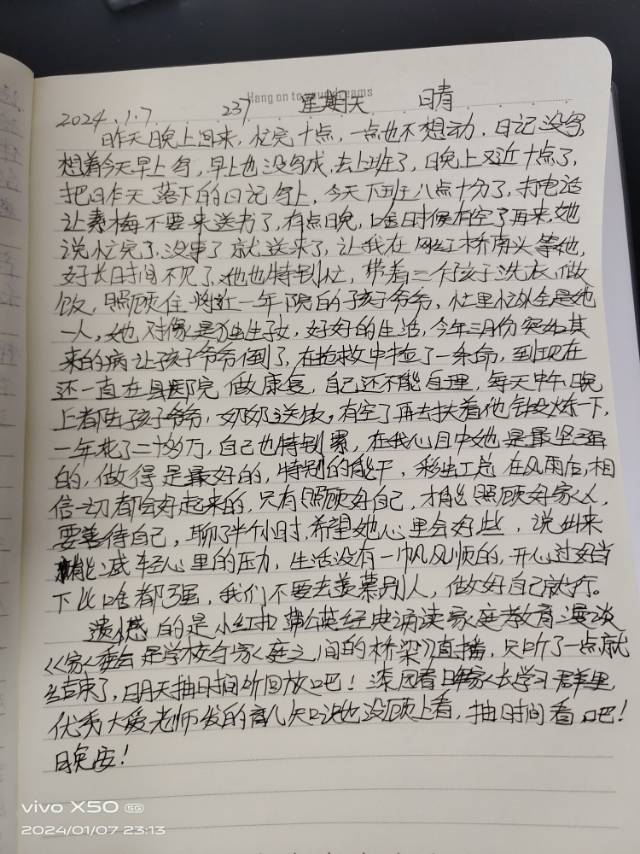 Hang on to your dreams
2024.1.7 237 星期天 晴
昨天晚上回来,忙完十点,一点也不想动,日记没写,
想着今天早上写,早上也没写成,去上班了,晚上又近十点了,
把昨天落下的日记写上,今天下班八点十分了,打电话
让素梅不要来送书了,有点晚,啥时候有空了再来,她
说忙完了,没事了就送来了,让我在网红桥南头等他,
好长时间不见了,她也特别忙,带着三个孩子洗衣、做
饭,照顾住将近一年院的孩子爷爷,忙里忙外全是她
一人,她对像是独生子女,好好的生活,今年三月份突如其
来的病让孩子爷爷倒了,在抢救中捡了一条命,到现在
还一直在县医院做康复,自己还不能自理,每天中午、晚
上都由孩子爷爷、奶奶送饭,有空了再去扶着他锻炼一下,
一年花了二十多万,自己也特别累,在我心目中她是最坚强
的,做得是最好的,特别的能干,彩虹总在风雨后,相
信一切都会好起来的,只有照顾好自己,才能照顾好家人,
要善待自己,聊了半个小时,希望她心里会好些,说出来
能减轻心里的压力,生活没有一帆风顺的,开心过好当
下比啥都强,我们不要去羡慕别人,做好自己就行。
遗憾的是小红书蒲公英经典诵读家庭教育漫谈
《家委会是学校与家庭之间的桥梁》直播,只听了一点就
结束了,明天抽时间听回放吧!漆园春日家长学习群里
优秀大爱老师发的育儿知识也没顾上看,抽时间看吧!
晚安!
vivo X50 5G
2024/01/07 23:13